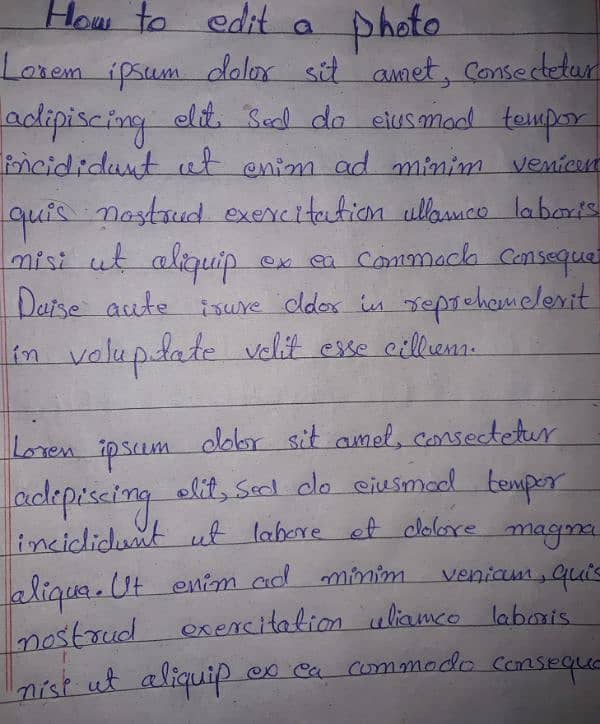 How to edit a photo
Lorem ipsum dolor sit amet, Consectetur
adipiscing elit. Sed do eiusmod tempor
incididunt ut enim ad minim venicen
quis nostrud exercitation ullamco laboris
nisi ut aliquip ex ea Commack Conseque
Duise aute irure dolor in reprehemderit
in voluptate velit esse cillum.
Loren ipsum dolor sit amet, consectetur
adipiscing elit, Sed do eiusmod tempor
incididunt ut labore et dolore magna
aliqua. Ut enim ad minim veniam, quis
nostrud exercitation uliamco laboris
nisi ut aliquip ex ea commodo consequa